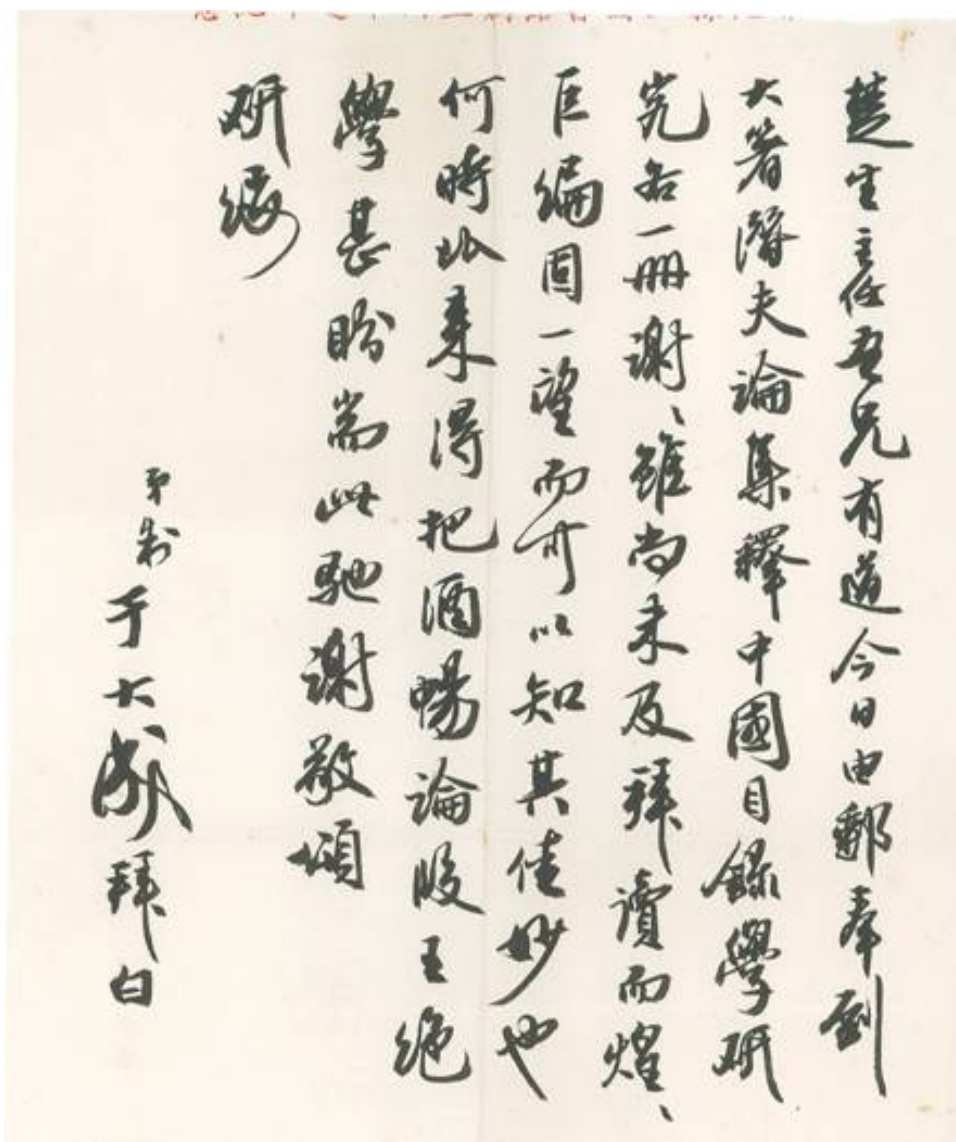 楚生主任吾兄有道今日由郵奉到
大著潛夫論集釋中國目錄學研
究各一冊謝、雖尚未及拜讀而煌、
巨編固一望而可以知其佳妙也
何時北來得把酒暢論段王絕
學甚盼耑此馳謝敬頌
研綏
弟制于大成拜白